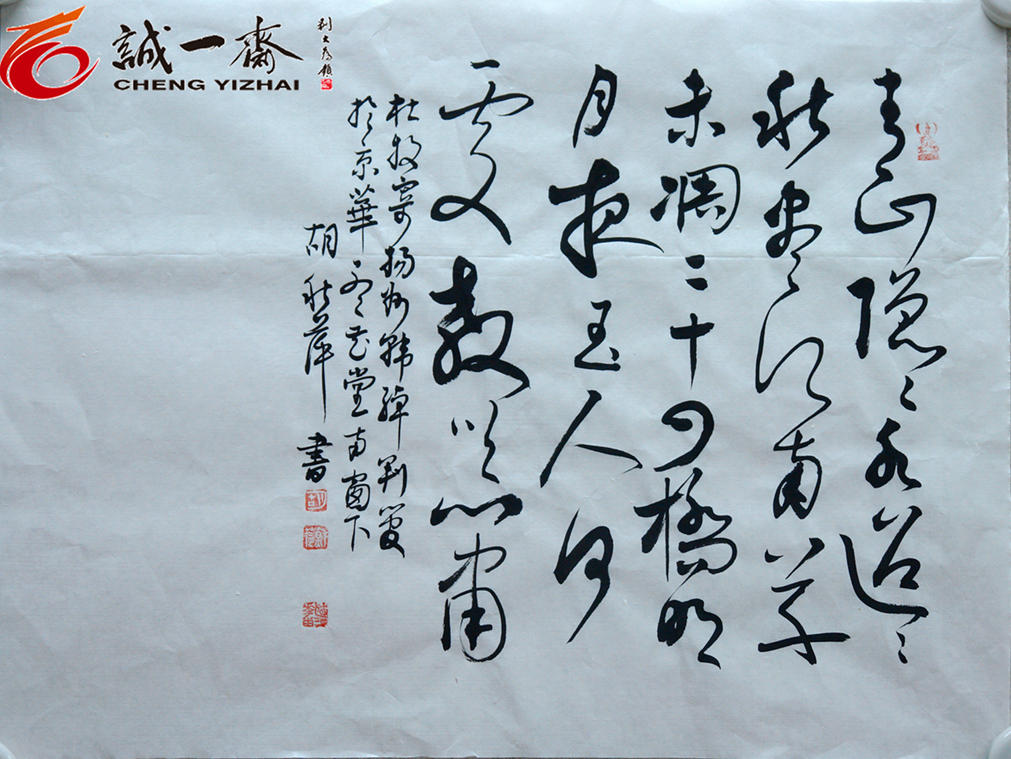 誠一齋
CHENG YIZHAI
刘大为题
青山隐〻水迢〻
秋尽江南草
未凋二十四橋明
月夜玉人何
處教吹簫
杜牧寄揚州韓綽判官
於京華堂南窗下
胡秋萍書